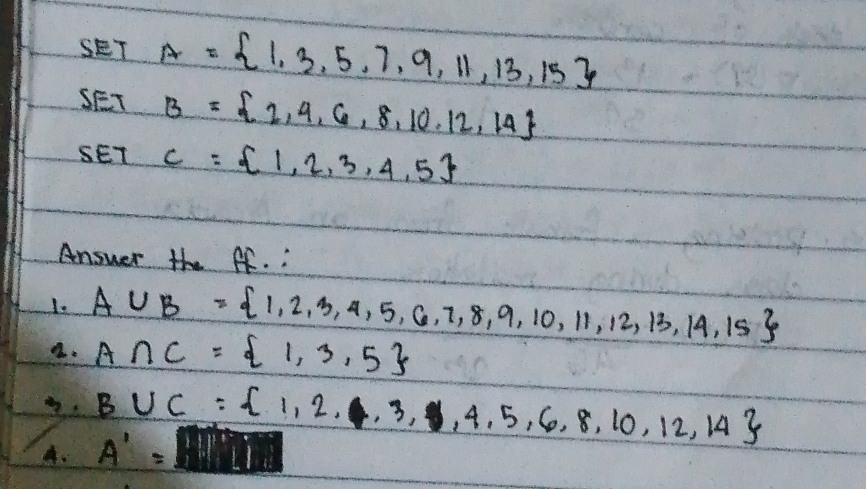 SET A = { 1, 3, 5, 7, 9, 11, 13, 15 }
SET B = { 2, 4, 6, 8, 10, 12, 14 }
SET C = { 1, 2, 3, 4, 5 }
Answer the ff. :
1. A ∪ B = { 1, 2, 3, 4, 5, 6, 7, 8, 9, 10, 11, 12, 13, 14, 15 }
2. A ∩ C = { 1, 3, 5 }
3. B ∪ C = { 1, 2, 3, 4, 5, 6, 8, 10, 12, 14 }
4. A' =